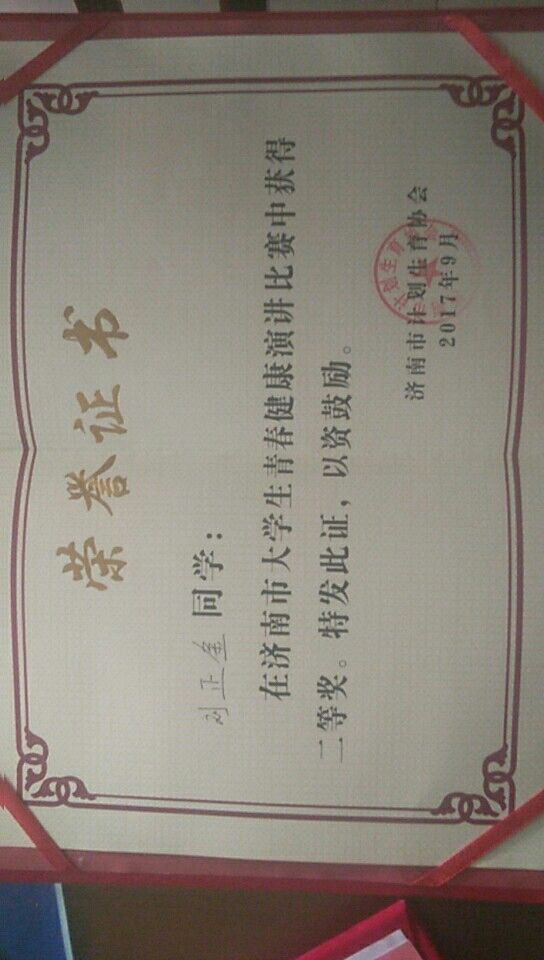 荣誉证书
刘正金 同学：
在济南市大学生青春健康演讲比赛中获得
二等奖。特发此证，以资鼓励。
济南市计划生育协会
2017年9月